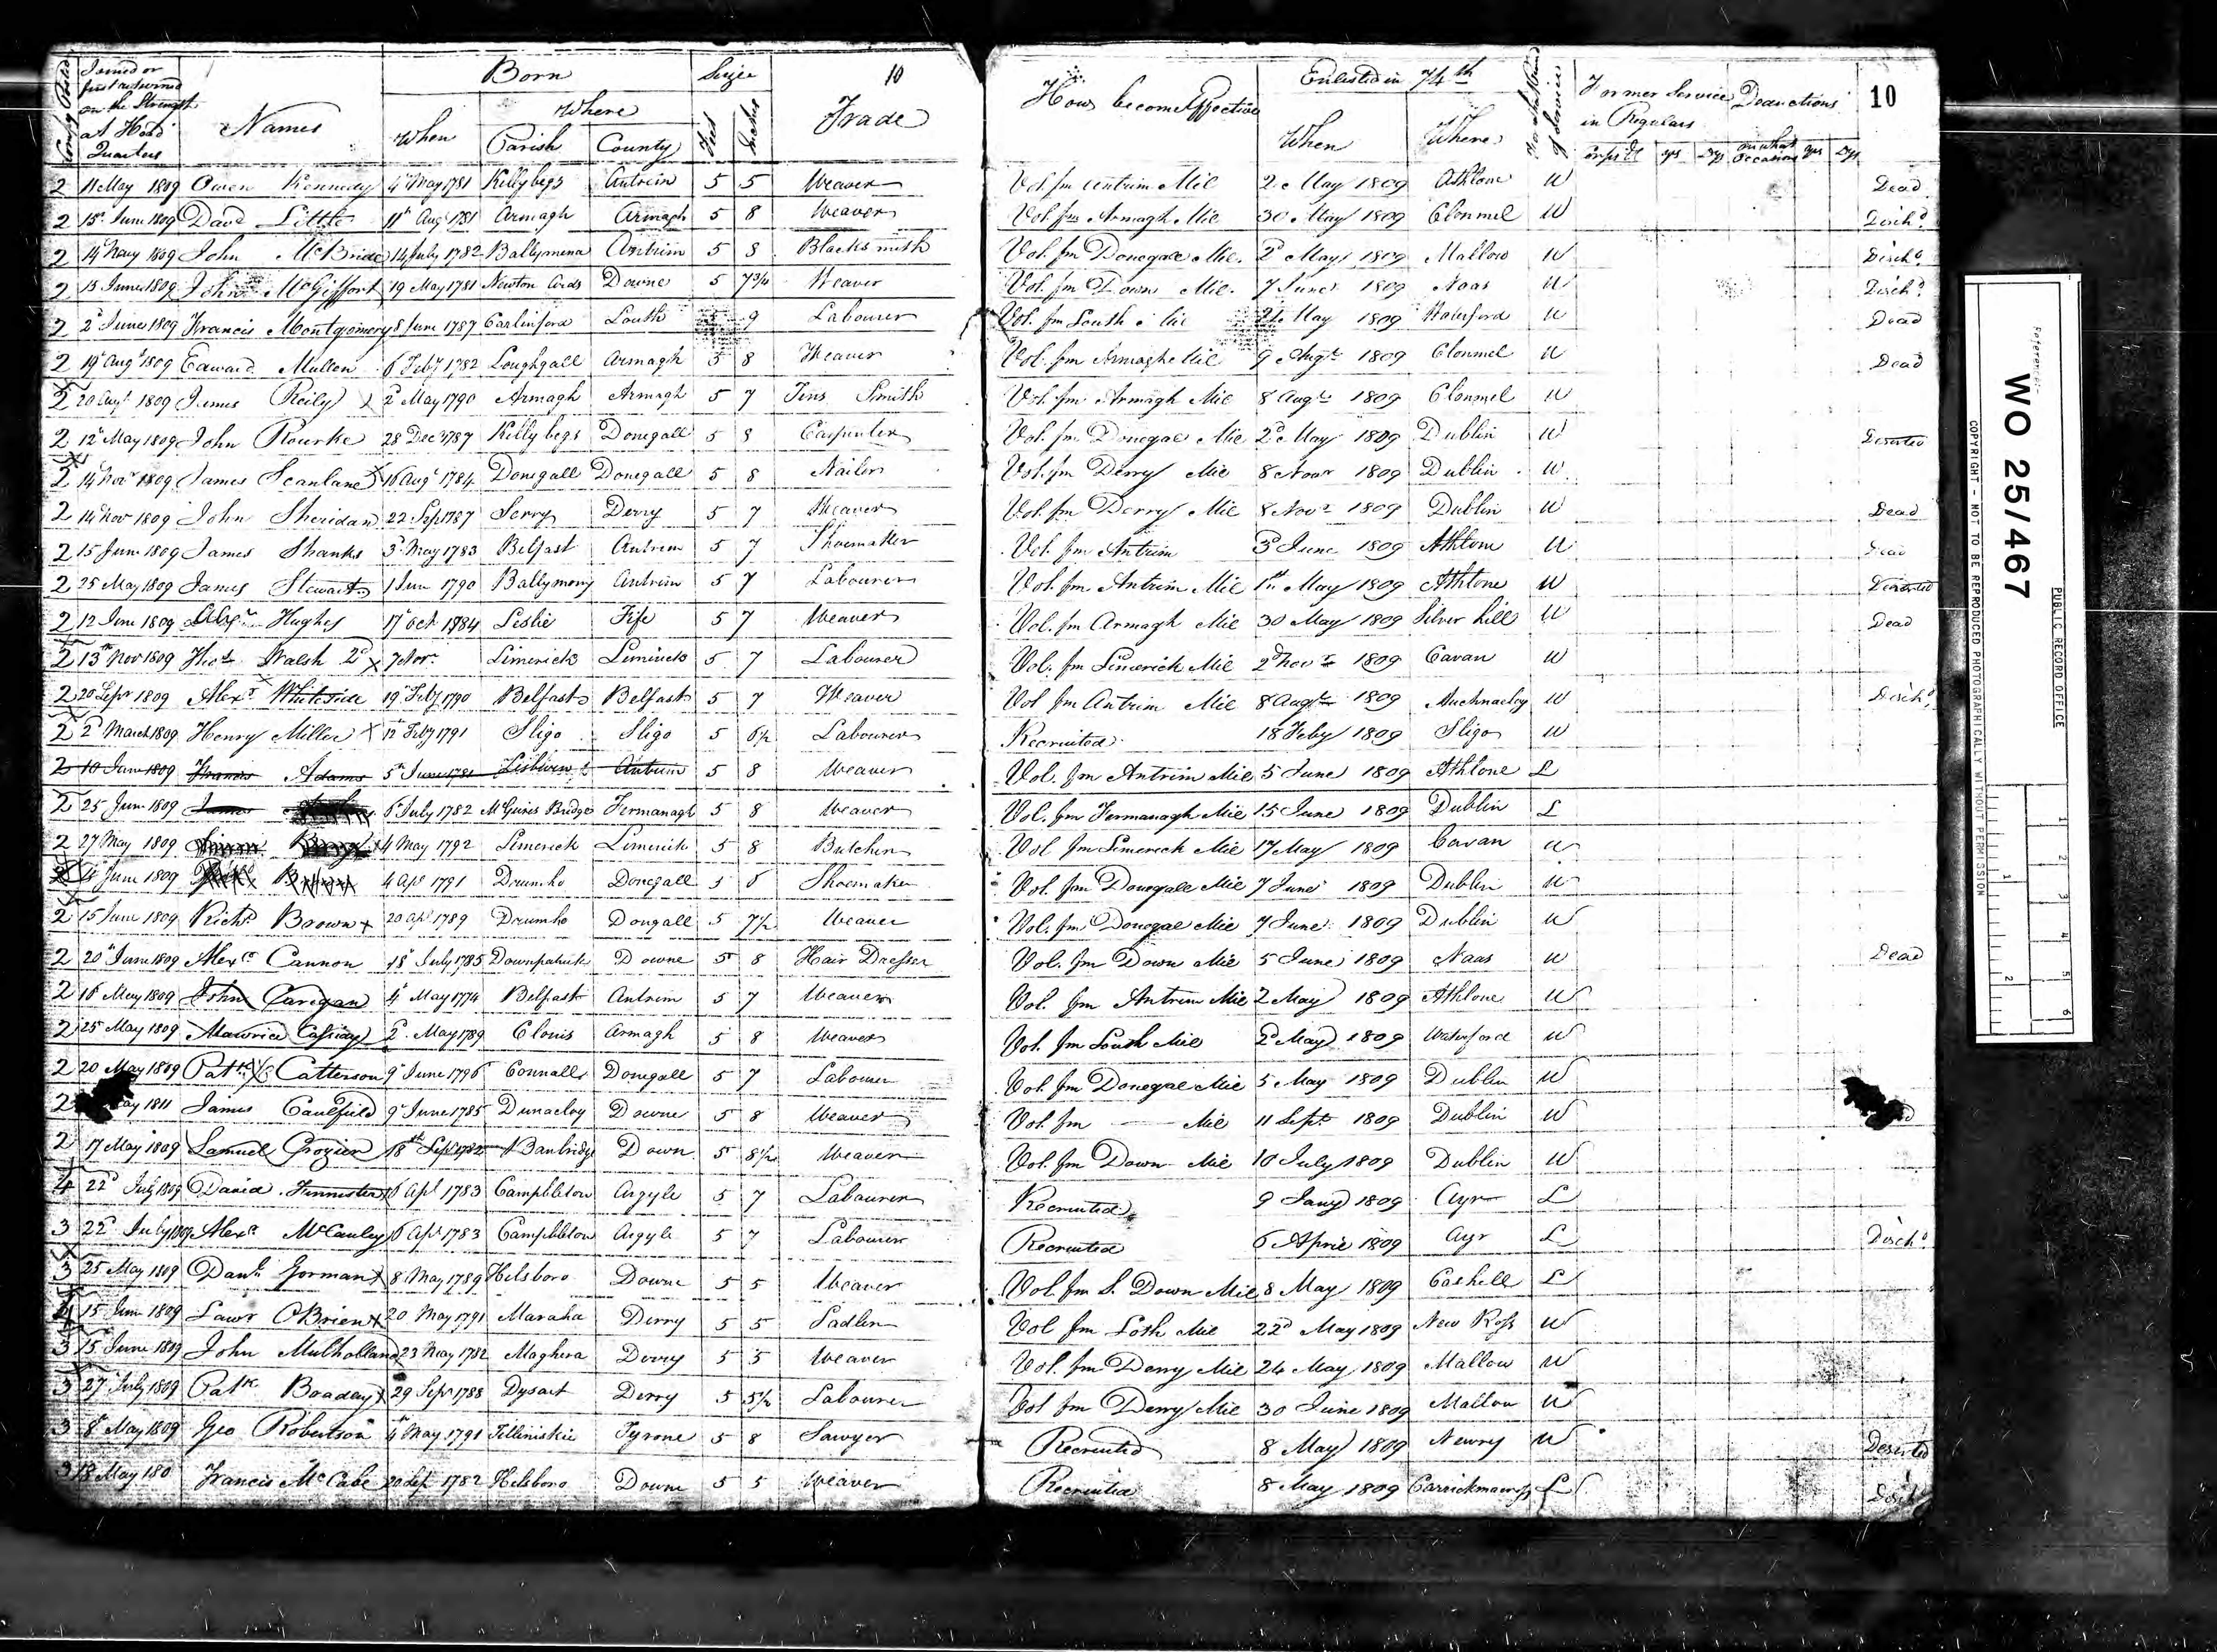 Compy Posted Joined or first returned on the Strength at Head Quarters Names Born When Where Parish County Size Feet Inches 10 Trade How become Effective Enlisted in 74th When Where Former Service in Regulars yrs Dys Deductions on what Occasions yrs Dys 10
2 11 May 1809 Owen Kennedy 4th May 1781 Killybegs Antrim 5 5 Weaver Vol. fm Antrim Mil 2d May 1809 Athlone U Dead
2 15th June 1809 David Little 11th Augt 1781 Armagh Armagh 5 8 Weaver Vol. fm Armagh Mil 30 May 1809 Clonmel U Dischd
2 14th May 1809 John McBride 14 July 1782 Ballymena Antrim 5 8 Blacksmith Vol. fm Donegal Mil. 2d May 1809 Mallow U Dischd
2 13 June 1809 John McGiffort 19 May 1781 Newton Ards Downe 5 7 3/4 Weaver Vol. fm Down Mil. 7 June 1809 Naas U Dischd
2 2d June 1809 Francis Montgomery 8 June 1787 Carlinford Louth 9 Labourer Vol. fm Louth Mil 24 May 1809 Waterford U Dead
2 19th Augt 1809 Edward Mullen 6 Feby 1782 Loughgall Armagh 5 8 Weaver Vol. fm Armagh Mil 9 Augt 1809 Clonmel U Dead
2 20 Augt 1809 James Reily x 2d May 1790 Armagh Armagh 5 7 Tins Smith Vol. fm Armagh Mil 8 Augt 1809 Clonmel U
2 12th May 1809 John Rourke 28 Decr 1787 Killybegs Donegall 5 8 Carpenter Vol. fm Donegal Mil 2d May 1809 Dublin U Deserted
2 14 Novr 1809 James Scanlane x 16 Augt 1784 Donegall Donegall 5 8 Nailer Vol. fm Derry Mil 8 Novr 1809 Dublin U
2 14 Novr 1809 John Sheridan 22 Sep 1787 Derry Derry 5 7 Weaver Vol. fm Derry Mil 8 Novr 1809 Dublin U Dead
2 15 June 1809 James Shanks 3d May 1783 Belfast Antrim 5 7 Shoemaker Vol. fm Antrim 3d June 1809 Athlone U Dead
2 25 May 1809 James Stewart 1 June 1790 Ballymony Antrim 5 7 Labourer Vol. fm Antrim Mil 1st May 1809 Athlone U Deserted
2 12 June 1809 Alexr Hughes 17th Oct 1784 Leslie Fife 5 7 Weaver Vol. fm Armagh Mil 30 May 1809 Silver hill U Dead
2 13th Novr 1809 Thos Walsh 2d x 7 Novr Limerick Limerick 5 7 Labourer Vol. fm Limerick Mil 2d Novr 1809 Cavan U
2 20 Sepr 1809 Alexr Whiteside 19th Feby 1790 Belfast Belfast 5 7 Weaver Vol fm Antrim Mil 8 Augt 1809 Auchnacloy U Dischd
2 2d March 1809 Henry Miller x 12 Feby 1791 Sligo Sligo 5 6½ Labourer Recruited 18 Feby 1809 Sligo U
2 10 June 1809 Francis Adams 5th June 1781 Lisburn Antrim 5 8 Weaver Vol. fm Antrim Mil 5 June 1809 Athlone L
2 25 June 1809 James 6th July 1782 McGuires Bridge Fermanagh 5 8 Weaver Vol. fm Fermanagh Mil 15 June 1809 Dublin L
2 27 May 1809 4 May 1792 Limerick Limerick 5 8 Butcher Vol fm Limerick Mil 17 May 1809 Cavan U
June 1809 4 Apr 1791 Drumho Donegall 5 Shoemaker Vol. fm Donegall Mil 7 June 1809 Dublin U
2 15 June 1809 Richd Brown x 20 Apl 1789 Drumho Dongall 5 7½ Weaver Vol. fm Donegal Mil 7 June 1809 Dublin U
2 20th June 1809 Alexr Cannon 18th July 1785 Downpatrick Downe 5 8 Hair Dresser Vol. fm Down Mil 5 June 1809 Naas U Dead
2 16 May 1809 John Caregan 4th May 1774 Belfast Antrim 5 7 Weaver Vol. fm Antrim Mil 2 May 1809 Athlone U
2 25 May 1809 Maurice Cassidy 2d May 1789 Clonis Armagh 5 8 Weaver Vol. fm Louth Mil 2d May 1809 Waterford U
2 20 May 1809 Patk Catterson 9th June 1796 Connall Donegall 5 7 Labourer Vol. fm Donegal Mil 5 May 1809 Dublin U
2 May 1811 James Caulfield 9th June 1785 Dunacloy Downe 5 8 Weaver Vol. fm —— Mil 11 Sept 1809 Dublin U
2 17 May 1809 Samuel Crozier 18th Sepr 1782 Banbridge Down 5 8½ Weaver Vol. fm Down Mil 10 July 1809 Dublin U
4 22d July 1809 David 6 Apl 1783 Campbleton Argyle 5 7 Labourer Recruited 9 Jany 1809 Ayr L
3 22d July 1809 Alexr McCauley 6 Apl 1783 Campbleton Argyle 5 7 Labourer Recruited 6 April 1809 Ayr L Dischd
3 25 May 1809 Danl Gorman x 8 May 1789 Hilsboro Downe 5 5 Weaver Vol. fm S. Down Mil 8 May 1809 Cashell L
4 15 June 1809 Lawr OBrien x 20 May 1791 Maraha Derry 5 5 Sadler Vol fm Loth Mil 22d May 1809 New Ross U
3 15 June 1809 John Mulholland 23 May 1782 Maghera Derry 5 5 Weaver Vol. fm Derry Mil 24 May 1809 Mallow U
3 27 July 1809 Patk Boaday x 29 Sepr 1788 Dysart Derry 5 5½ Labourer Vol fm Derry Mil 30 June 1809 Mallow U
3 8th May 1809 Geo Robertson 4th May 1791 Tilliniskie Tyrone 5 8 Sawyer Recruited 8 May 1809 Newry U Deserted
3 18 May 180 Francis McCabe 20 Sep 1782 Hilsboro Downe 5 5 Weaver Recruited 8 May 1809 Carrickmacross L Dischd
Reference:-
WO 25/467
PUBLIC RECORD OFFICE
COPYRIGHT - NOT TO BE REPRODUCED PHOTOGRAPHICALLY WITHOUT PERMISSION
1 2 3 4 5 6
1 2